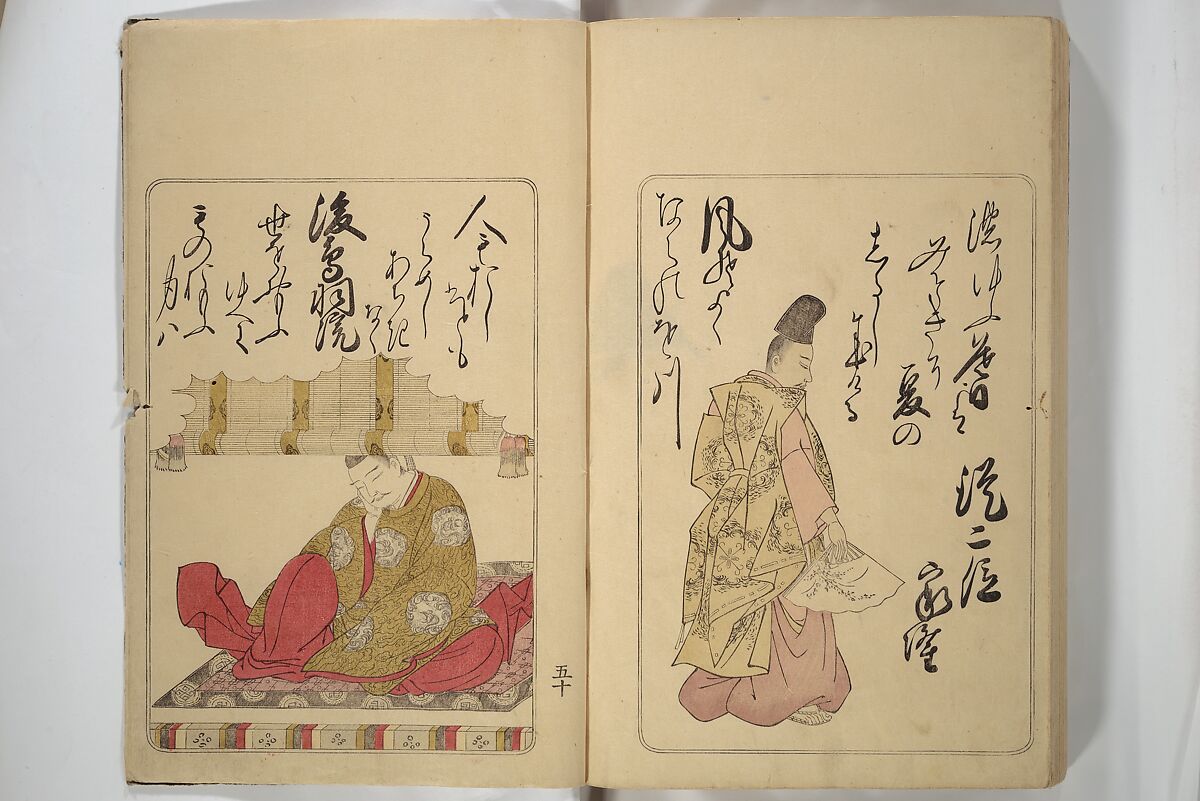 従二位
家隆
風そよく
ならのを川
濃ゆふ暮は
みそきそ
夏の
しるし
なりける
後鳥羽院
人もおし
人も
うらめし
あちき
なく
世をおもふ
ゆへに
ものおもふ
身ハ
五十